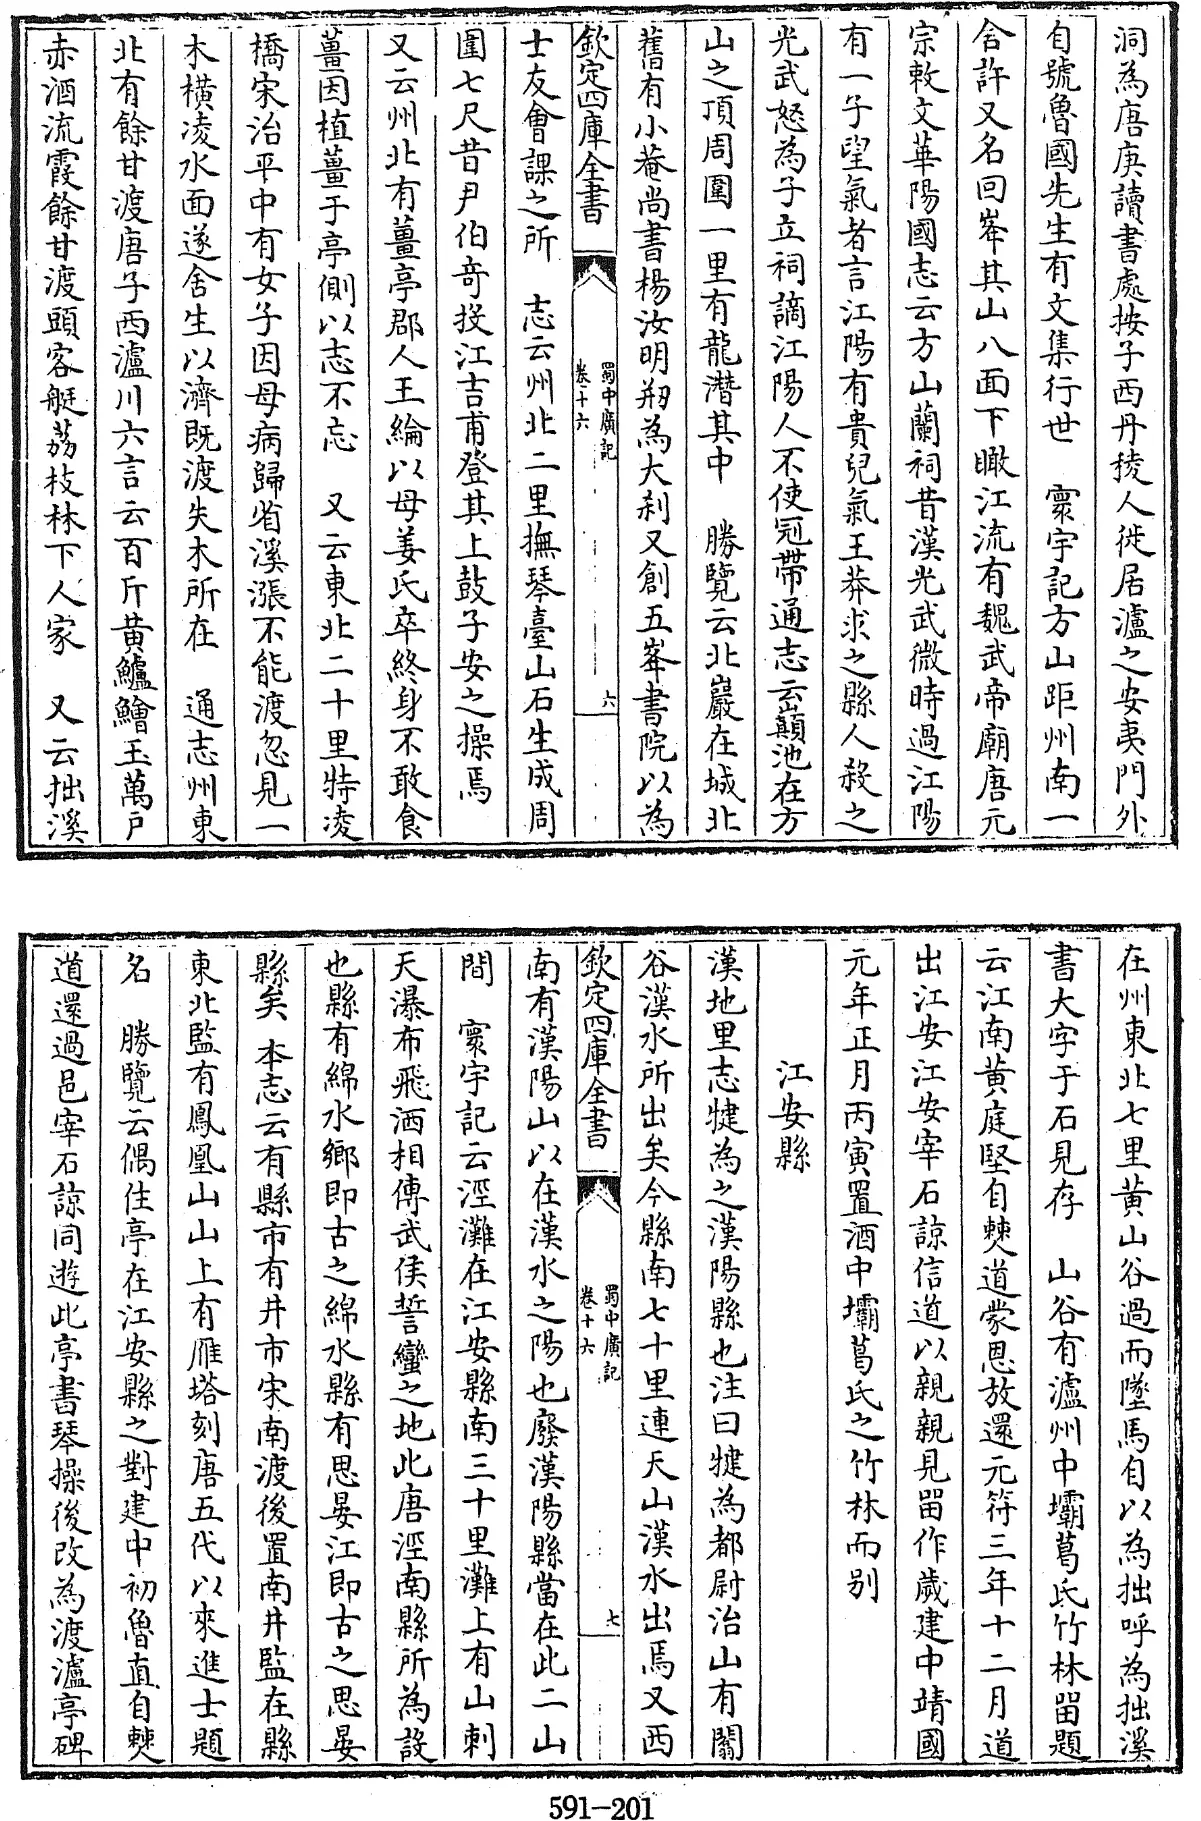 洞為唐庚讀書處按子西丹稜人徙居瀘之安夷門外
自號魯國先生有文集行世　寰宇記方山距州南一
舍許又名回峯其山八面下瞰江流有魏武帝廟唐元
宗敕文華陽國志云方山蘭祠昔漢光武微時過江陽
有一子望氣者言江陽有貴兒氣王莽求之縣人殺之
光武怒為子立祠謫江陽人不使冠帶通志云巔池在方
山之頂周圍一里有龍潛其中　勝覽云北巖在城北
舊有小菴尚書楊汝明剏為大刹又創五峯書院以為
欽定四庫全書
蜀中廣記
卷十六
六
士友會課之所　志云州北二里撫琴臺山石生成周
圍七尺昔尹伯奇投江吉甫登其上鼓子安之操焉
又云州北有薑亭郡人王綸以母姜氏卒終身不敢食
薑因植薑于亭側以志不忘　又云東北二十里特凌
橋宋治平中有女子因母病歸省溪漲不能渡忽見一
木橫凌水面遂舍生以濟既渡失木所在　通志州東
北有餘甘渡唐子西瀘川六言云百斤黃鱸鱠玉萬戶
赤酒流霞餘甘渡頭客艇荔枝林下人家　又云拙溪
在州東北七里黃山谷過而墜馬自以為拙呼為拙溪
書大字于石見存　山谷有瀘州中壩葛氏竹林留題
云江南黃庭堅自僰道蒙恩放還元符三年十二月道
出江安江安宰石諒信道以親親見留作歲建中靖國
元年正月丙寅置酒中壩葛氏之竹林而别
江安縣
漢地里志犍為之漢陽縣也注曰犍為都尉治山有闟
谷漢水所出矣今縣南七十里連天山漢水出焉又西
欽定四庫全書
蜀中廣記
卷十六
七
南有漢陽山以在漢水之陽也廢漢陽縣當在此二山
間　寰宇記云涇灘在江安縣南三十里灘上有山刺
天瀑布飛洒相傳武侯誓蠻之地此唐涇南縣所為設
也縣有綿水鄉即古之綿水縣有思晏江即古之思晏
縣矣　本志云有縣市有井市宋南渡後置南井監在縣
東北監有鳳凰山山上有雁塔刻唐五代以來進士題
名　勝覽云偶住亭在江安縣之對建中初魯直自僰
道還過邑宰石諒同遊此亭書琴操後改為渡瀘亭碑
591-201